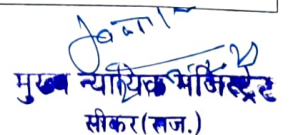 मुख्य न्यायिक मजिस्ट्रेट
सीकर (राज.)